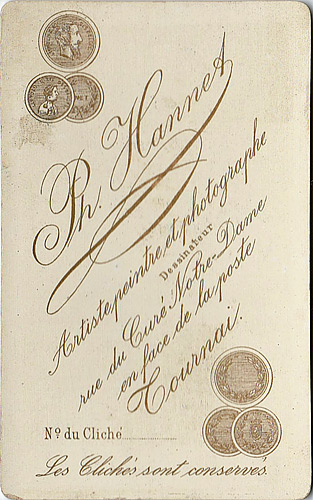 Ph. Hannet
Artiste peintre, et photographe
Dessinateur
rue du Curé Notre-Dame
en face de la poste
Tournai.
Nº du Cliché
Les Clichés sont conservés.